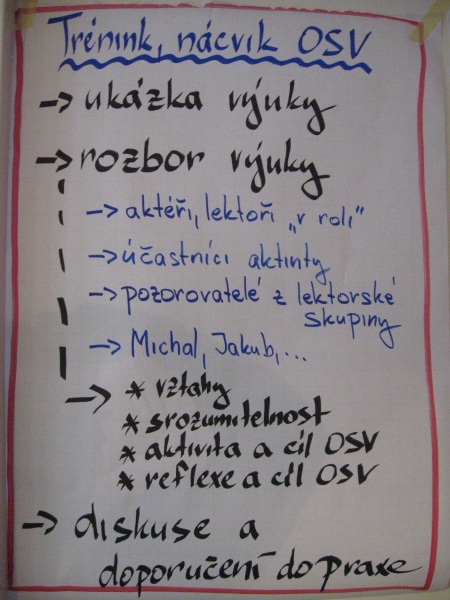 Trénink, nácvik OSV
→ ukázka výuky
→ rozbor výuky
→ aktéři, lektoři „v roli"
→ účastníci aktivity
→ pozorovatelé z lektorské
skupiny
→ Michal, Jakub,...
→ * vztahy
* srozumitelnost
* aktivita a cíl OSV
* reflexe a cíl OSV
→ diskuse a
doporučení do praxe